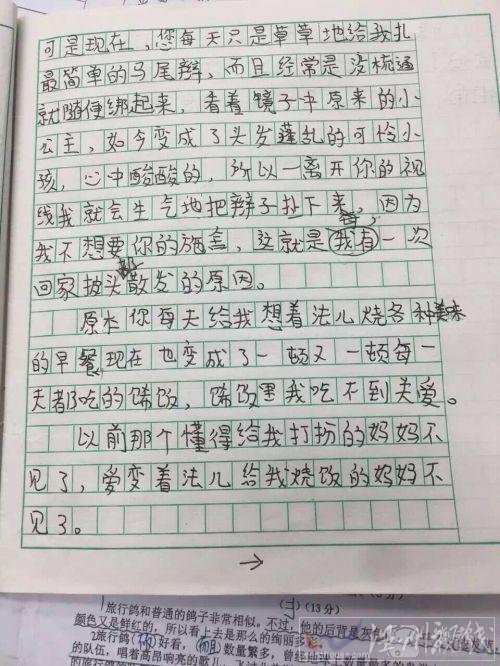 可是现在，您每天只是草草地给我扎
最简单的马尾辫，而且经常是没梳通
就随便绑起来，看着镜子中原来的小
公主，如今变成了头发蓬乱的可怜小
孩，心中酸酸的，所以一离开你的视
线我就会生气地把辫子扯下来，因为
我不想要你的施舍，这就是我有一次
回家披头散发的原因。
原本你每天给我想着法儿烧各种美味
的早餐现在也变成了一顿又一顿每一
天都吃的馊饭，馊饭里我吃不到关爱。
以前那个懂得给我打扮的妈妈不
见了，爱变着法儿给我烧饭的妈妈不
见了。
→
(二)(13分)
1旅行鸽和普通的鸽子非常相似。不过，他的后背是灰
颜色又是鲜红的，所以看上去是那么的绚丽多
2旅行鸽 好看， 数量繁多，曾经
的队伍，唱着高昂响亮的歌儿，飞过